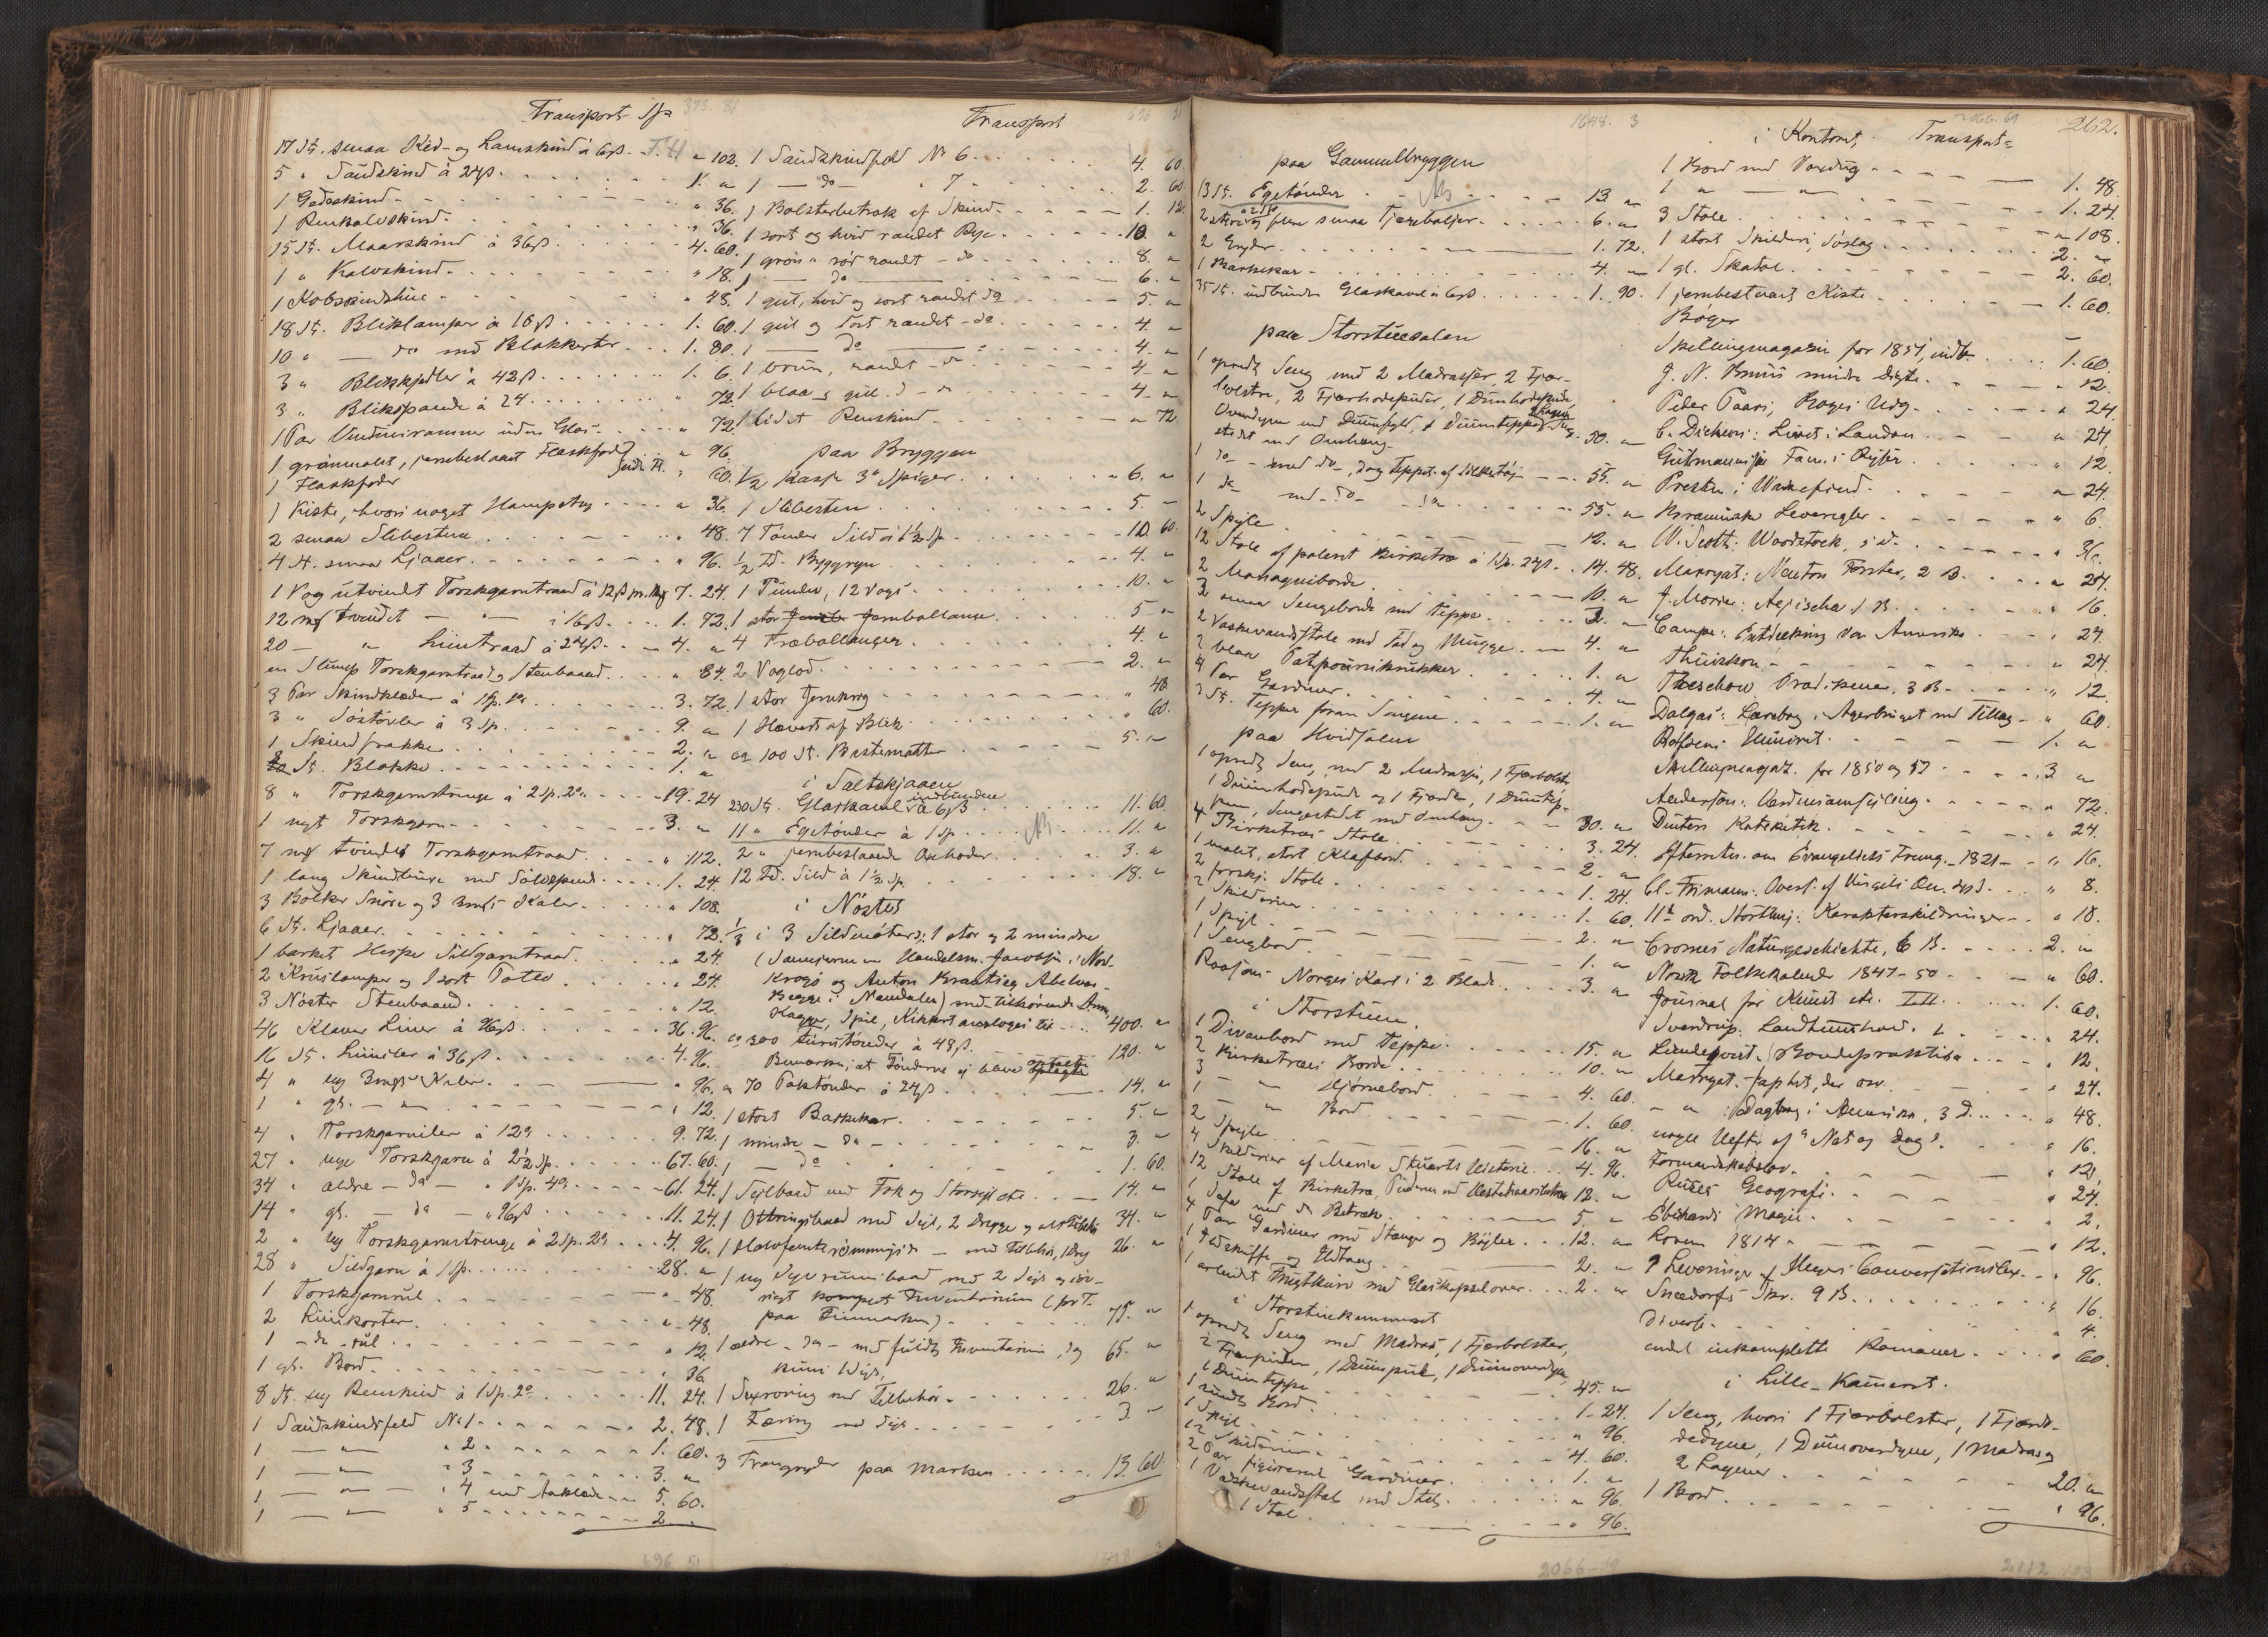 Transport Sp
17 St. smaa Kid- og Lamskind à 6ß " 102.
5 " Saudskind à 24ß 1. "
1 Gedeskind " 36.
1 Renkalvskind " 36.
15 St. Maarskind à 36ß 4. 60.
1 " Kalvskind " 18.
1 Kobskindshue " 48.
18 St. Bliklamper à 10ß 1. 60.
10 " — do med Blakkerter 1. 80.
3 " Blikkjedler à 42ß 1. 6.
3 " Blikspande à 24 " 72.
1 Par Vinduesrammer uden Glas " 72.
1 grønmalet, jernbeslaaet Flaskefoder " 96.
1 Flaskfoder " 60.
1 Kiste, hvori noget Hampetoug " 36.
2 smaa Slibestene " 48.
4 St. smaa Ljaaer " 96.
1 Vog utvundt Torskgarntraad à 12ß pr. Mk 7. 24.
12 mk tvundet — " — à 16ß 1. 72.
20 — " Liintraad à 24ß 4. "
en Slump Torskgarntraad og Steenbaand " 84.
3 Par Skindklæder à 1Sp. 3. 72.
3 " Søstøvler à 3 Sp. 9. "
1 Skindfrakke 2. "
St. Blokke 1. "
8 " Torskgarnstrenge à 2 Sp. 2 " 19. 24
1 nyt Torskgarn 3. "
7 mk tvundet Torskgarntraad " 112.
1 lang Skindbuxe med Sølvspænde 1. 24.
3 Bolker Snøre og 3 Kaler " 108.
6 St. Ljaaer " 72.
1 barket Hespe Sildgarntraad " 24.
2 Kruslamper og 1 sort Potte " 24.
3 Nøster Stenbaand " 12.
46 Klaver Liner à 96ß 36. 96.
16 St. Liiniler à 36ß 4. 96.
4 " ny Kaler " 96.
1 " gl. — " " 12.
4 " Torskgarniler à 9. 72.
27 " nye Torskgarn à 2½ Sp. 67. 60.
34 " ældre — do — " 1Sp. 61. 24.
14 " gl. — do — " 96ß 11. 24.
2 " ny Torskgarnstrenge à 2 Sp. 4. 96.
28 " Sildgarn à 1 Sp. 28. "
1 Torskgarnrul " 48.
2 Liinkorter " 48.
1 — do — rul " 12.
1 gl. Bord " 36
8 St. ny Renskind à 1Sp. 11. 24.
1 Saudskindsfeld No 1 2. 48.
1 — " — " 2 1. 60.
1 — " — " 3 3. "
1 — " — " 4 med Aaklæde 5. 60.
1 — " — " 5 2.
696 51
Transport
1 Saudskindfeld No 6 4. 60
1 — do — " 7 2. 60
1 Bolsterbetræk af Skind 1. 12.
1 sort og hvid randet Rye 10. "
1 grøn " rød randt — do 8. "
1 — do 6. "
1 gul, hvid og sort randet do 5. "
1 gul og sort randet — do 4. "
1 — do — 4. "
1 brun, randt — do 4. "
1 blaa og gul 4. "
1 lidet Renskind " 72.
paa Bryggen
½ Kasse 3" Spiger 6. "
1 Slibesten 5. "
7 Tønder Sild à 1½ Sp 10. 60
½ Td. Byggryn 4. "
1 Punder, 12 Vogs 10. "
1 stor Jernballance 5. "
4 Træballanger 4. "
2 Voglod 2. "
1 stor Jernkrog " 48
1 Hævert af Blik " 60.
ca 100 St. Bastematter 5. "
i Saltskjaaen
230 St. Glaskavl indbundne à 6ß 11. 60.
11 " Egetønder à 1Sp. 11. "
2 " jernbeslaaede Oxhoder 3. "
12 Td. Sild à 1½ Sp. 18. "
i Nøstet
⅓ i 3 Sildenøter; 1 stor og 2 mindre
(Sameierne ere Handelsm. Jacobsen i Nord-
Krogø og Anton Brandtzeg Abelvær-
Begge i Namdalen) med tilhørende
Kagger, Spil, Kikkert anslagen til 400. "
ca 300 tørretønder à 48ß 120. "
Bemærkn; at Tønderne ej blive
ca 70 Paktønder à 24ß 14. "
1 stort Barkekar 5. "
1 mindre — do — 3. "
1 — do 1. 60.
1 Seilbaad med Fok og Storseil etc 14. "
1 Ottringsbaad med Seil, 2 Drægge og alt Tilbehør 34. "
1 Halvfemterømmings do — med Tilbehør, 1 Dræg 26. "
1 ny Fyrrumsbaad med 2 Seil og iøv-
rigt komplet Inventarium (for T.
paa Finmarken) 75. "
1 ældre — do — med fuldt Inventarium, dog
kuns 1 Seil, 65. "
1 Sexroring med Tilbehør 26. "
1 Færing med Seil 3. "
3 Trangryder paa Marken 13. 60.
1648. 3
paa Gammelbryggen
13 St. Egetønder 13. "
2 store og flere smaa Tjærebaljer 6. "
2 Gryder 1. 72.
1 Barkekar 4. "
35 St. indbundne Glaskavl à 6ß 1. 90.
paa Storstuesalen
1 opredt Seng med 2 Madrasser, 2 Fjær-
bolstre, 2 Fjærhodepuder, 1 Duunhodepude,
Overdyne med Duunfyld, 1 Duunteppe, Seng-
stedet med Omhæng 50. "
1 do — med do —, dog Teppet af Silketøj 55. "
1 do med — do — do 55. "
2 Speile 12. "
12 Stole af poleret Birketræ à 1Sp. 24ß 14. 48.
2 Mahagniborde 10. "
2 smaa Sengeborde med Teppe 2. "
2 Vaskevandsstole med Fad og Mugge 4. "
2 blaa Patpourrikrukker 1. "
4 Par Gardiner 4. "
3 St. Tepper foran Sengene 1. "
paa Hvidsalen
1 opredt Seng, med 2 Madrasser, 1 Fjærbolster,
1 Duunhodepude og 1 Fjærdo, 1 Duuntep-
pe, Sengestedet med Omhæng 30. "
4 Birketræes Stole 3. 24.
1 malet, stort Klafbord 2. "
2 forskj. Stole 1. 24.
2 Skilderier 1. 60.
1 Speil 2. "
1 Sengbord 1. "
Roosens Norges Kart i 2 Blade 3. "
i Storstuen.
1 Divanbord med Teppe 15. "
2 Birketræes Borde 10. "
3 — " Hjørnebord 4. 60.
1 — " Bord 1. 60.
2 Speile 16. "
4 Skilderier af Maria Stuarts Historie 4. 96.
12 Stole af Birketræ, Puderne med Hestehaarsbetræk 12. "
1 Sofa med do Betræk 5. "
4 Par Gardiner med Stænger og Bøjler 12. "
1 Ildskuffe og Ildtang 2. "
1 arbeidet Frugtkurv med Glaskapsel over 2. "
i Storstuekammeret
1 opredt Seng med Madras, 1 Fjærbolster,
2 Fjærpuder, 1 Duunpude, 1 Duunoverdyne,
1 Duunteppe 45. "
1 rundt Bord 1. 24.
1 Speil " 96.
12 Skilderier 4. 60.
2 Par figurerede Gardiner 1. "
1 Vaskevandsstol med Stel " 96.
1 Stol " 96.
2066-69
262.
i Kontoret Transport
1 Bord med Voxdug 1. 48.
1 " — " 1. 24.
3 Stole " 108.
1 stort Skilderi, Søslag 2. "
1 gl. Skatol 2. 60.
1 jernbeslaaet Kiste 1. 60.
Bøger
Skillingmagazin for 1851, indb. 1. 60.
J. N. Bruuns mindre Digte " 12.
Peder Paars, Roges Udg. " 24
C. Dickens: Livet i London " 24.
Gutmannske Fam. i Rejser " 12.
Præsten i Wakefield " 24.
Braminske Leveregler " 6.
W. Scott: Woodstock, " 36.
Marryat: Newton Forster, 2 B. " 24.
J. Morier: Aejischa 1 B. " 16.
Campe: Entdeckung von Amerika " 24.
Thuiskon " 24.
Treschow Prædikener, 3 B. " 12.
Dalgas: Lærebog i Agerbruget med Tillæg " 60.
Rolfsens Huusret 1. "
Skillingmagaz. for 1850 og 57 3. "
Anderson: Verdensomseiling " 72.
Dinters Katekitik " 24.
Efterretn. om Evangeliets Fremg. 1821 " 16.
Cl. Frimann: Overs. af Virgils Æn. " 8.
11te ord. Storthing: Karakterskildringer " 18.
Cromes Naturgeschichte, 6 B. 2. "
Norsk Folkekalender 1847-50 " 60.
Journal for Kunst etc. 1. 60.
Sverdrup: Landhuushold. " 24.
Lundequist, Bondepraktika " 12.
Marryat. Japhet, der osv. " 24.
— " : Dagbog i Amerika, 3 D. " 48.
nogle Hefter af "Nat og Dag" " 16.
Formandskabslov " 12.
Ruses Geografi " 24.
Eberhards Magie " 2.
Loven 1814 " 12.
9 Leveringer af Meyers Conversationslex. " 96.
Sneedorfs Skr. 9 B. " 16.
Diverse " 4.
endel inkomplette Romaner " 60.
i Lille-Kameret.
1 Seng, hvori 1 Fjærbolster, 1 Fjærdo-
dedyne, 1 Duunoverdyne, 1 Madras og
2 Lagener 20. "
1 Bord " 96.
2112 103